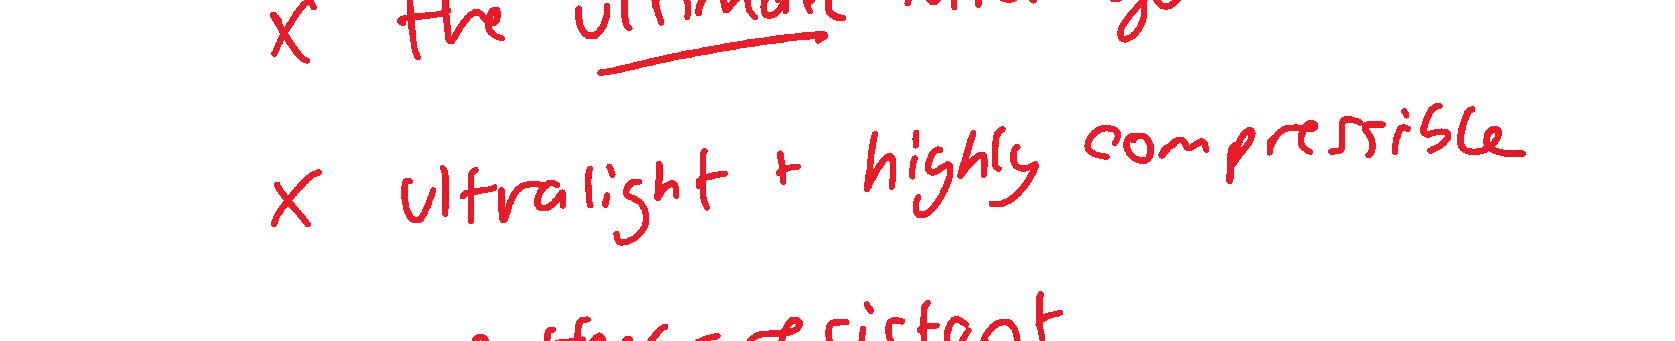 x the ultimate
x ultralight + highly compressible
resistant